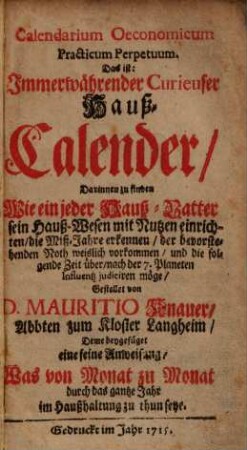 Calendarium Oeconomicum
Practicum Perpetuum.
Das ist:
Immerwährender Curieuser
Hauß-
Calender/
Darinnen zu finden
Wie ein jeder Hauß-Vatter
sein Hauß-Wesen mit Nutzen einrich-
ten/die Miß-Jahre erkennen/ der bevorste-
henden Noth weißlich vorkommen/ und die fol-
gende Zeit über/nach der 7. Planeten
Influentz judiciren möge/
Gestellet von
D. MAURITIO Knauer/
Abbten zum Kloster Langheim/
Deme beygefüget
eine feine Anweisung/
Was von Monat zu Monat
durch das gantze Jahr
im Haußhaltung zu thun seye.
Gedruckt im Jahr 1715.